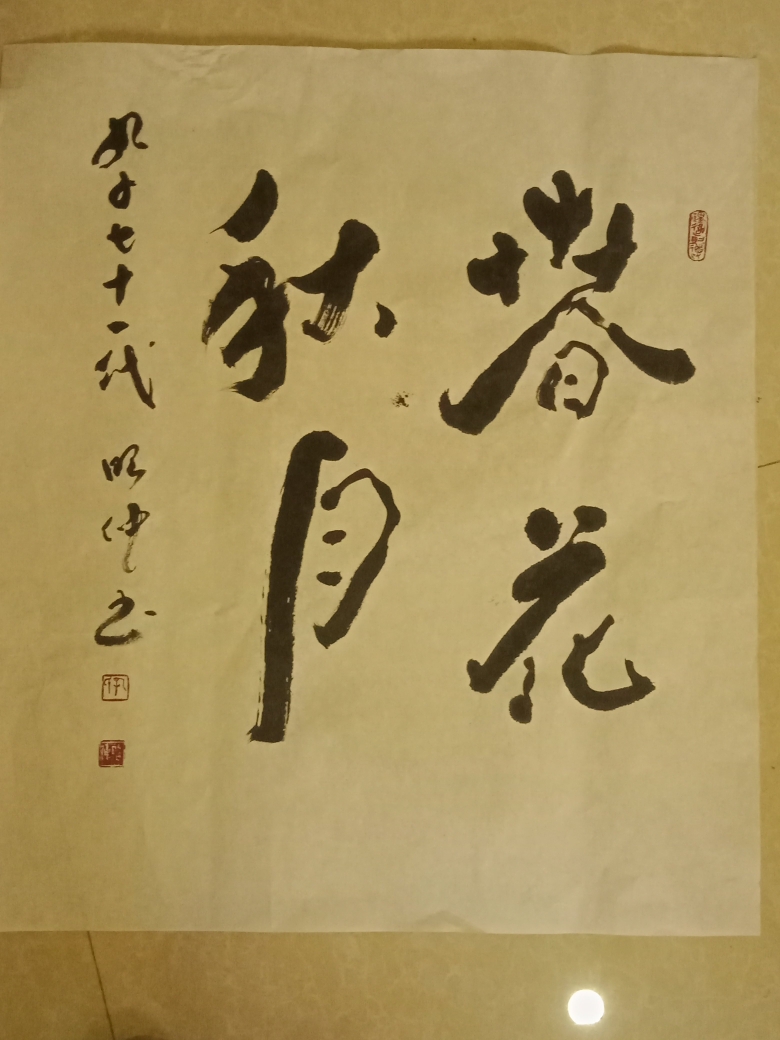 春花
秋月
孔子七十一代 昭仲书